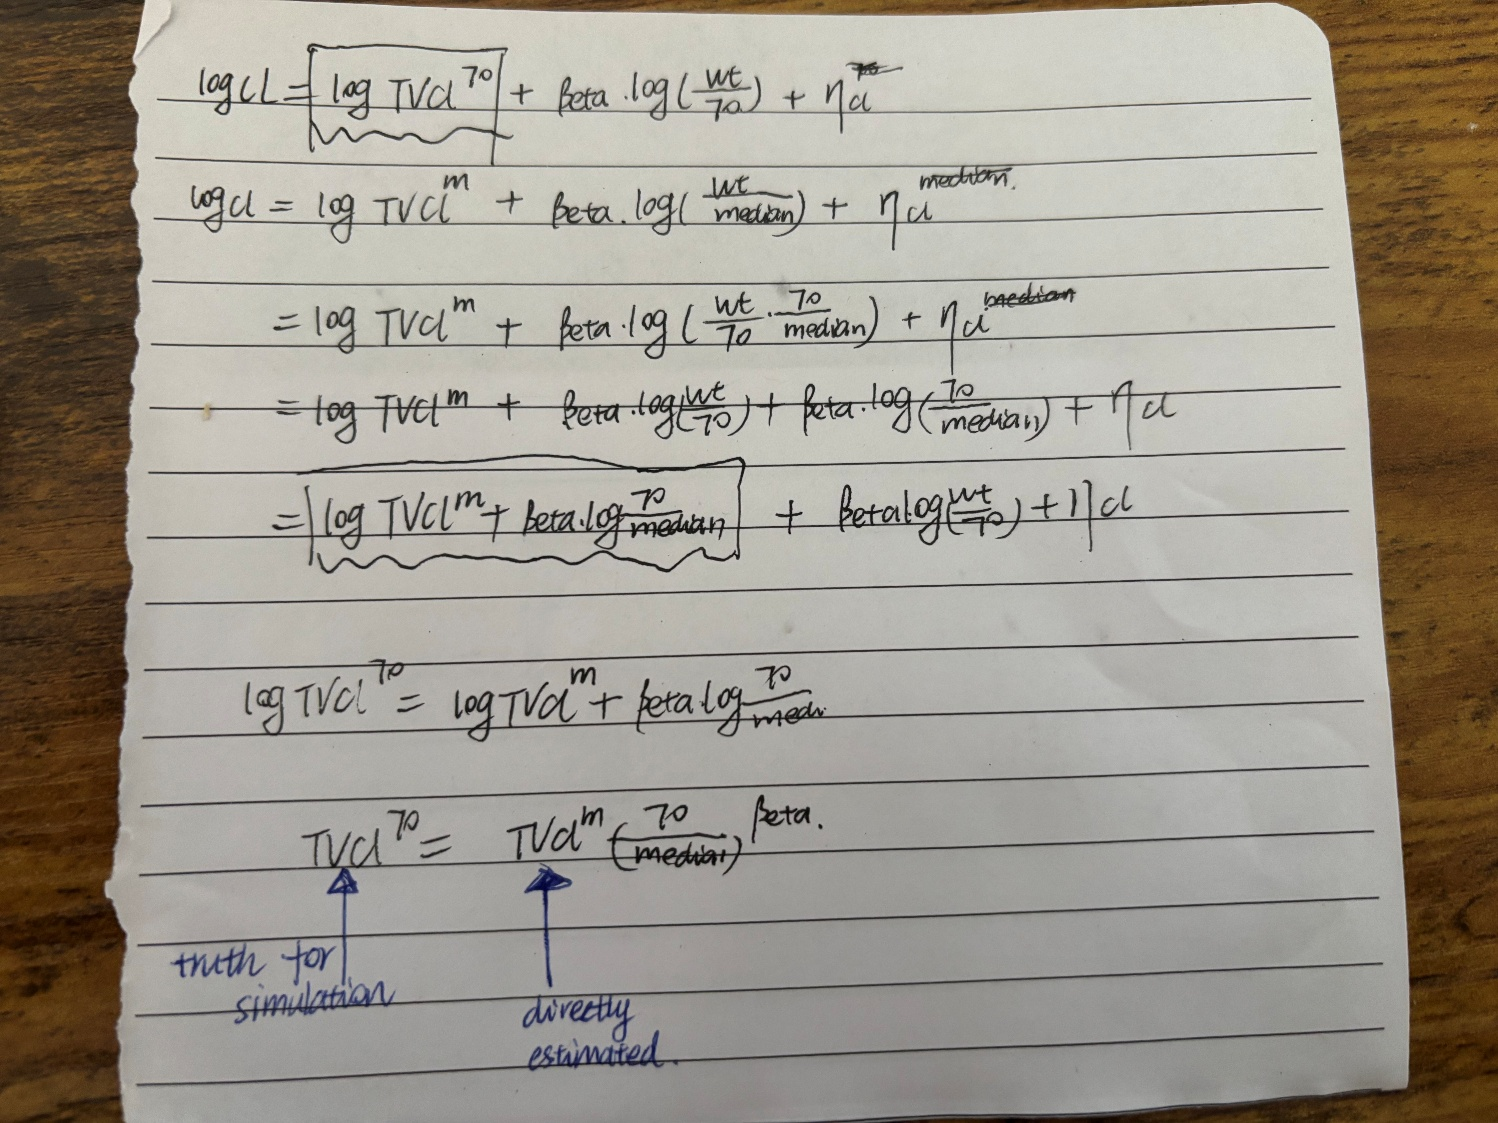 log CL = log TVcl^70 + Beta . log(wt/70) + ηcl
log cl = log TVcl^m + Beta . log(wt/median) + ηcl^median.
= log TVcl^m + Beta . log(wt/70 . 70/median) + ηcl^median
= log TVcl^m + Beta . log(wt/70) + Beta . log(70/median) + ηcl
= log TVcl^m + Beta . log 70/median + Beta log(wt/70) + ηcl
log TVcl^70 = log TVcl^m + Beta . log 70/medi.
TVcl^70 = TVcl^m (70/median)^Beta.
truth for
simulation
directly
estimated.